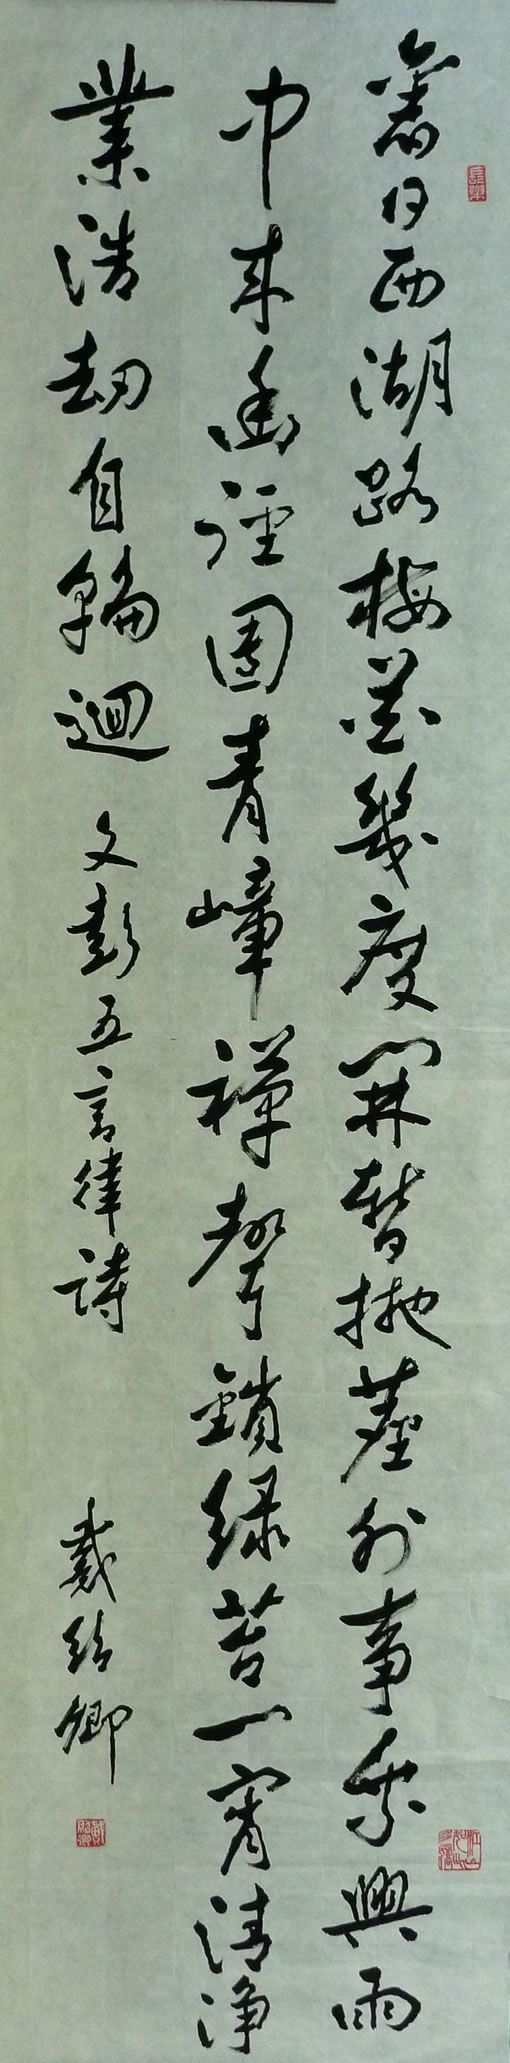 舊日西湖路梅花幾度開暫拋塵外事乘興雨
中來幽徑圍青嶂禪聲鎖綠苔一宵清淨
業浩劫自輪迴 文彭五言律詩 戴紹卿